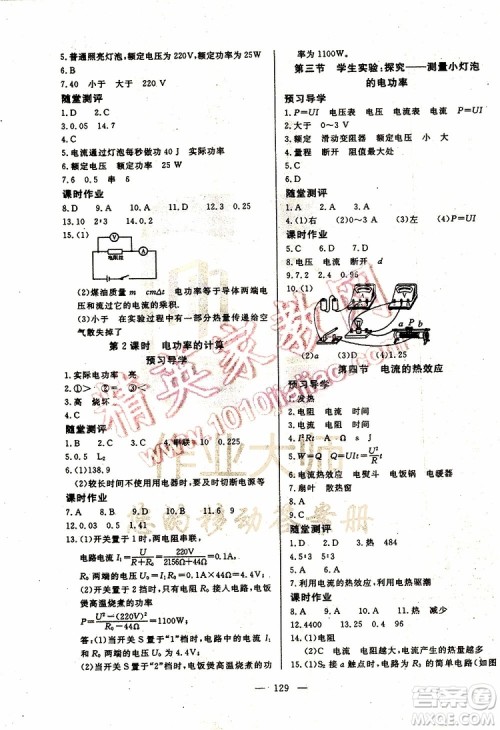 5. 普通照亮灯泡, 额定电压为 220V, 额定功率为 25 W
6. B
7. 40 小于 大于 220 V
随堂测评
1. D 2. C
3. 0.05 14.7
4. C
5. 电流通过灯泡每秒做功 40 J 实际功率
6. 额定电压 额定功率 300
7. 6 0.5 串 6
课时作业
8. D 9. A 10. D 11. D 12. C
13. 10 2∶3 14. 2 0.3
15. (1)
V
电阻丝
A
(2)煤油质量 m cmΔt 电功率等于导体两端电
压和流过它的电流的乘积.
(3)小于 在实验过程中有一部分热量传递给空
气散失掉了
第 2 课时 电功率的计算
预习导学
1. 实际电功率 亮
2. ①>
3. 高 烧坏
4.
随堂测评
1. B 2. D 3. C 4. 串联 10 0.225
5. 0.5 L₂
6. (1)138.9
(2)较长时间不使用用电器时, 应及时切断电源等
课时作业
7. A 8. D 9. B 10. C 11. A
12. 0.03 2.5
13. (1)开关置于 1 时, 两电阻串联,
电路电流 I₁=U/(R+R₀)=220V/(2156Ω+44Ω)=0.1A,
R₀ 两端的电压为 U₀=I₁R₀=0.1A×44Ω=4.4V.
(2)开关置于 2 时, 电路中只接入 R₀, 电饭
煲高温烧煮的功率
P=U²/R₀=(220V)²/44Ω=1100W.
答:(1)当开关 S 置于“1”档时, 电路中的电流
和 R₀ 两端的电压为 0.1A 和 4.4V;
(2)当开关 S 置于“2”档时, 电饭煲高温烧煮的功
率为 1100W.
第三节 学生实验: 探究——测量小灯泡
的电功率
预习导学
1. P=UI 电压表 电压 电流表 电流 P=UI
2. 大于 0～3 V
3. 额定 滑动变阻器 额定电压 小 大
4. 量程 断开 阻值最大处
随堂测评
1. A 2. A 3. A 4. (1)右 (2)
课时作业
5. D 6. D 7. C
8. 电压 电流 断开 d
9. 7.2 2.4 0.96
10. (1)
a P b
(2)a (3)d (4)1.25
第四节 电流的热效应
预习导学
1. 发热
2. 电阻 电流 时间
3. 电流 电阻 时间
5. W=Q Q=UIt=U²/R t
6. 电流热效应 电熨斗 电饭锅 电暖器
7. 扇叶 散热窗
随堂测评
1. D 2. B 3. 热 484
4. 5∶3 5.
6. D
7. 利用电流的热效应 利用电热驱潮
课时作业
8. D 9. C 10. C 11. B
12. 4400 13. 热 减少
14. (1)电阻
(2)电流 电阻越大, 电流产生的热量越多
15. (1)S₂ 接 a 触点时, 电路中只有 R₁ 的简单电路(如图
— 129 —
精英家教网
www.1010jiajiao.com
作业大师
您的移动答案册
答案圈